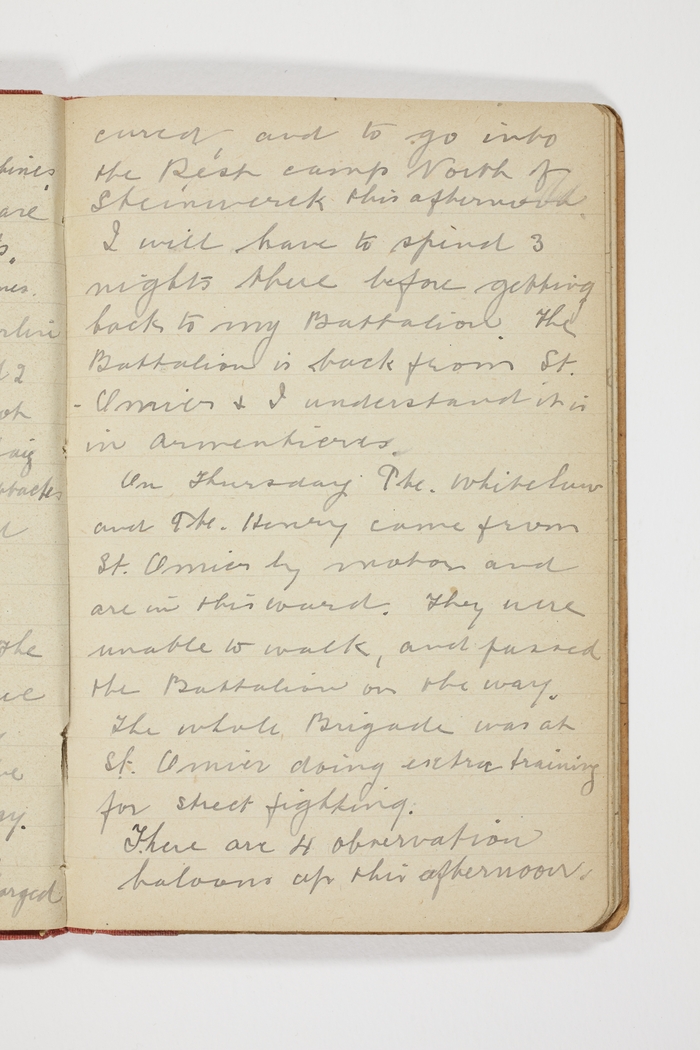 cured, and to go into
the Rest camp North of
Steinwerck this afternoon
I will have to spend 3
nights there before getting
back to my Battalion. The
Battalion is back from St.
Omier & I understand it is
in Armentieres.
On Thursday Pte. Whitelaw
and Pte. Henry came from
St. Omier by motor and
are in this ward. They were
unable to walk, and passed
the Battalion on the way.
The whole Brigade was at
St. Omier doing extra training
for street fighting.
There are 4 observation
baloons up this afternoon.
hines
are
s.
nes.
2
aig
the
ve
ay.
arged